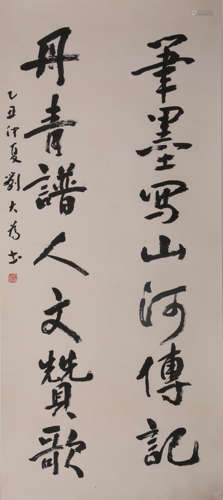 筆墨写山河傳記
丹青譜人文贊歌
乙丑仲夏劉大為書